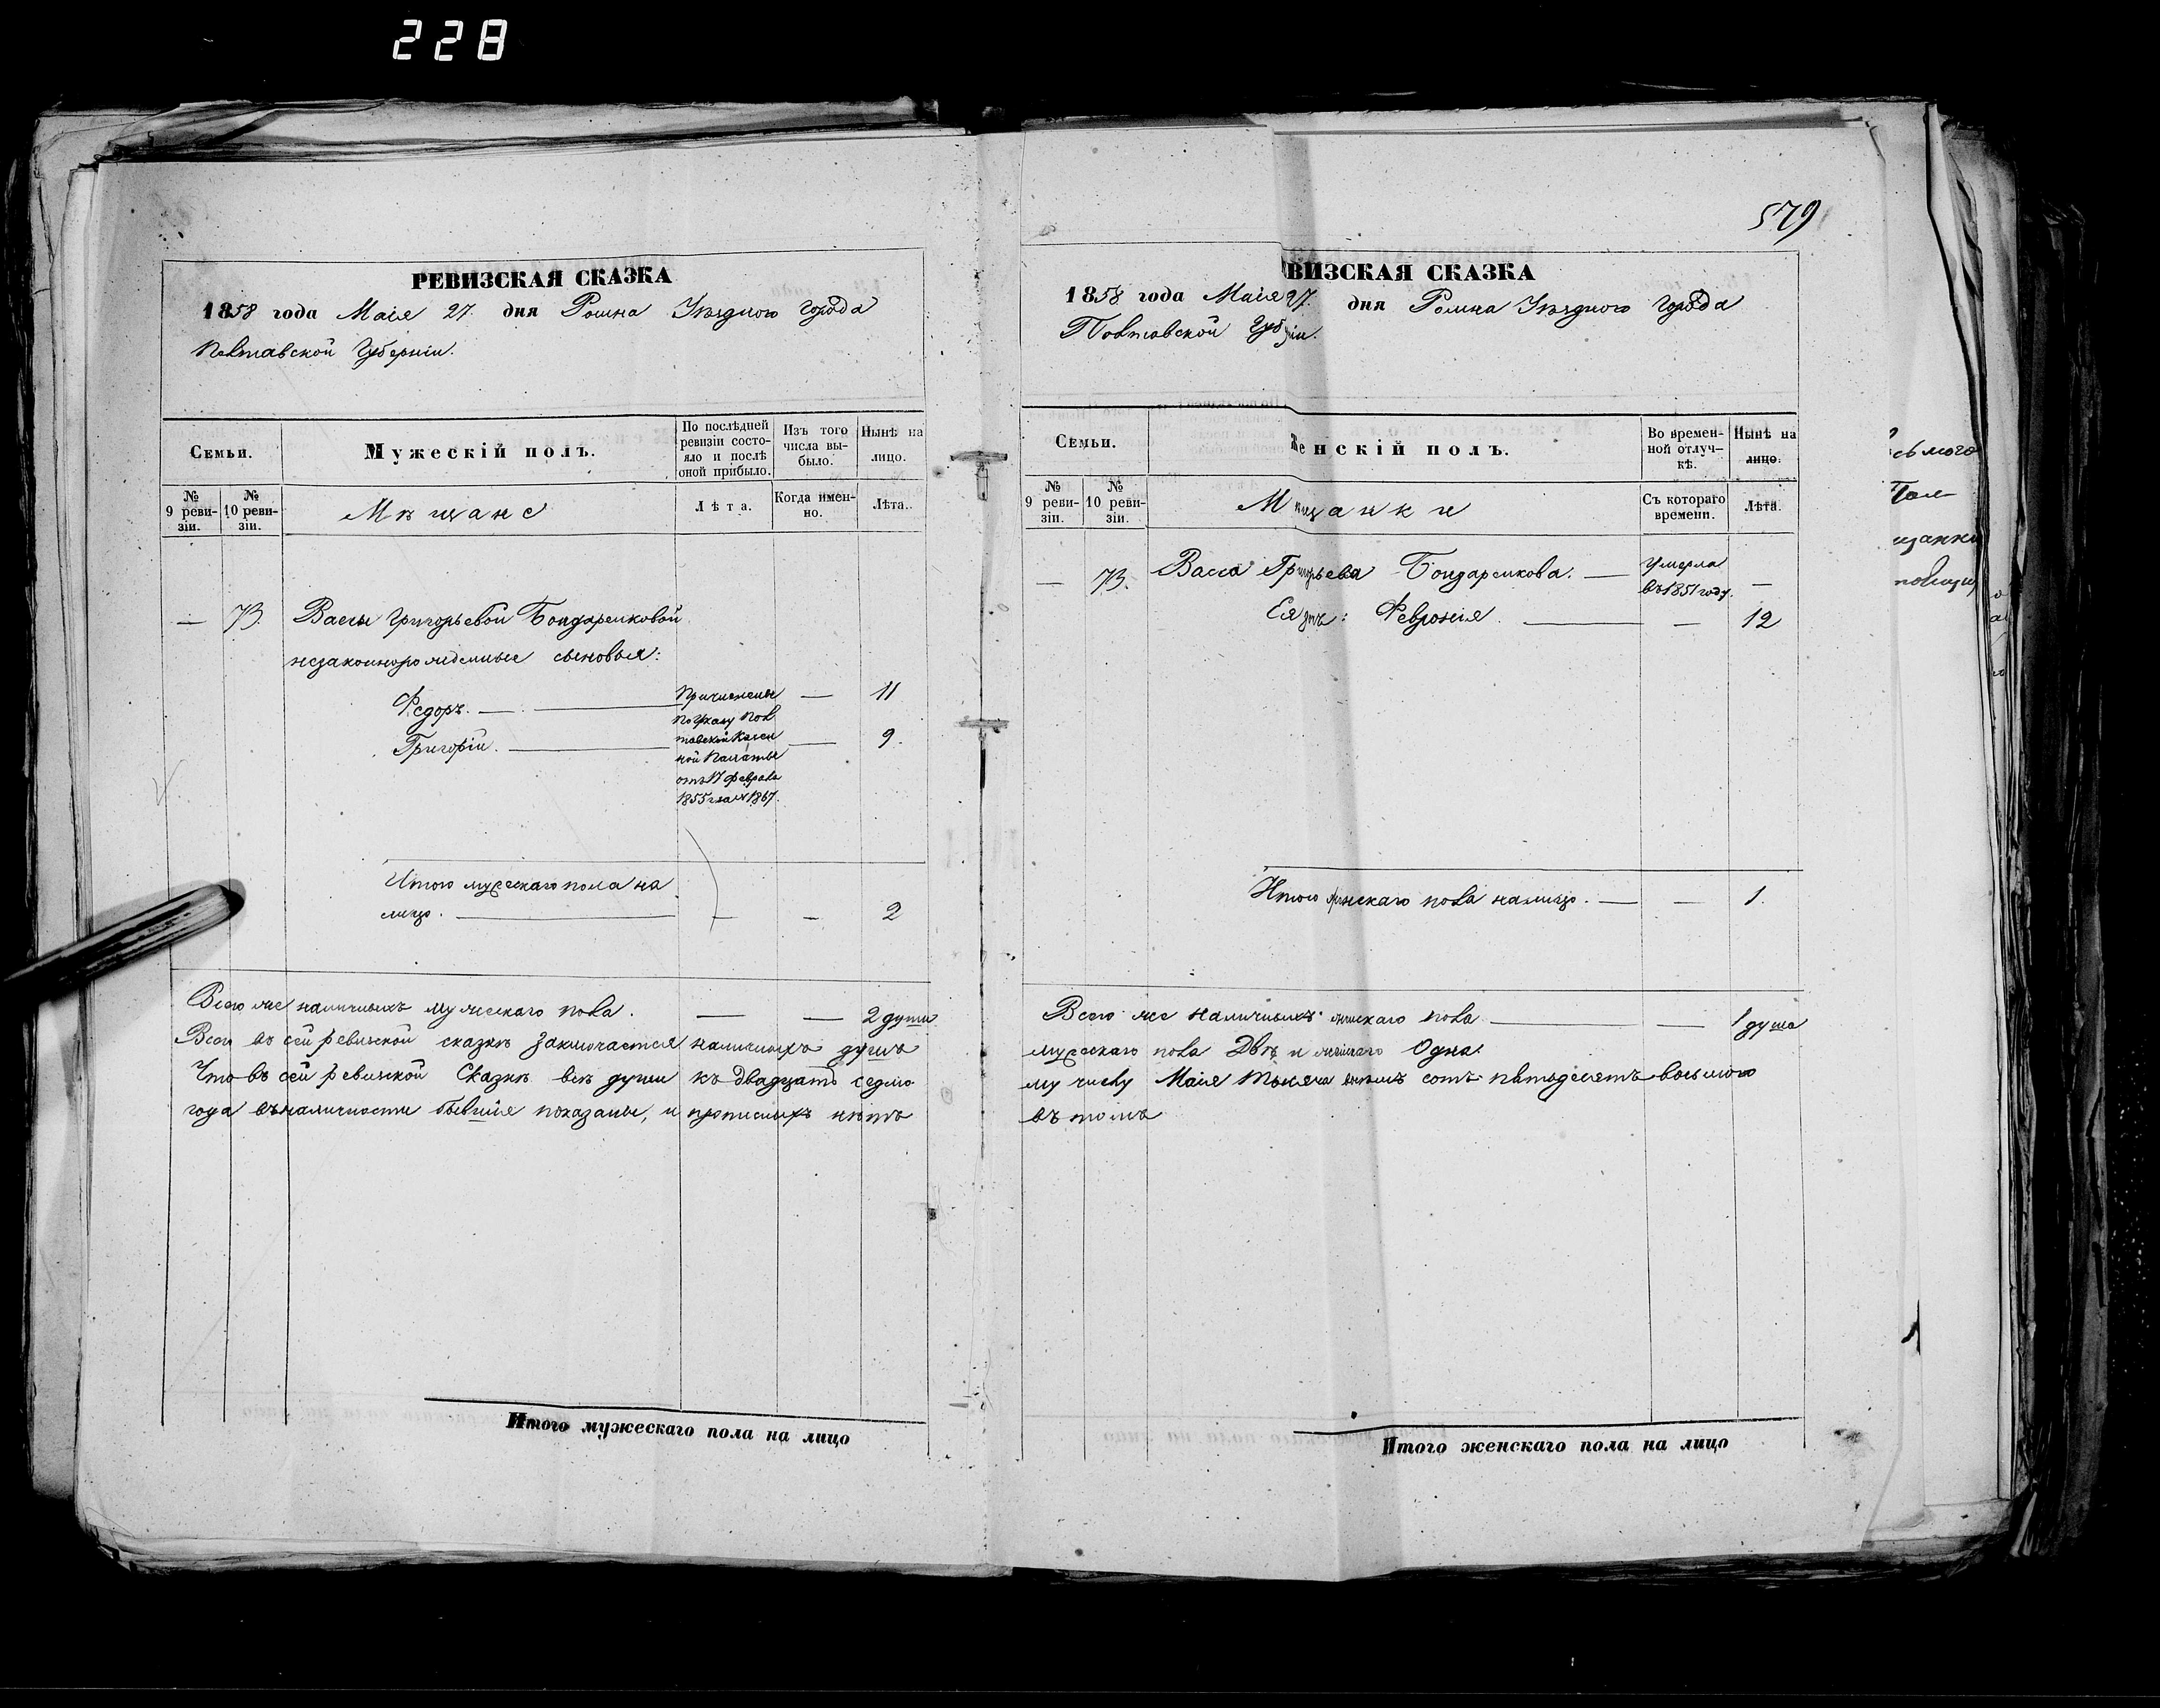 228
579
РЕВИЗСКАЯ СКАЗКА
1858 года Маія 27. дня Ромна Уѣзднаго города
Полтавской Губерніи.
Семьи.
Мужескій полъ.
По послѣдней ревизіи состояло и послѣ оной прибыло.
Изъ того числа выбыло.
Нынѣ на лицо.
№ 9 ревизіи.
№ 10 ревизіи.
Мѣщане
Лѣта.
Когда именно.
Лѣта.
— 73. Вассы Григорьевой Бондаренковой
незаконнорожденные сыновья:
Федоръ. — — 11
Григорій. — — 9.
Причислены
по Указу Пол
тавской Казен
ной Палаты
отъ 17 Февраля
1855 г. за № 1867.
Итого мужескаго пола на
лицо. — — — 2
Всего же наличныхъ мужескаго пола. — — 2 души
Всего въ сей ревизской сказкѣ заключается наличныхъ душъ
Что въ сей ревизской Сказкѣ всѣ души къ двадцать седмо
года въ наличности бывшія показаны, и прописныхъ нѣтъ
Итого мужескаго пола на лицо
ВИЗСКАЯ СКАЗКА
1858 года Маія 27. дня Ромна Уѣзднаго города
Полтавской Губ іи.
Семьи.
Женскій полъ.
Во временной отлучкѣ.
Нынѣ на лицо.
№ 9 ревизіи.
№ 10 ревизіи.
Мѣщанки
Съ котораго времени.
Лѣта.
— 73. Васса Григорьева Бондаренкова. — Умерла
въ 1851 году. —
Ея : Февронія. — — 12
Итого женскаго пола налицо. — — 1.
Всего же наличныхъ женскаго пола — — 1 душа
мужескаго пола Двѣ и женскаго Одна.
му числу Маія тысяча восемь сотъ пятьдесятъ восьмого
въ томъ
Итого женскаго пола на лицо